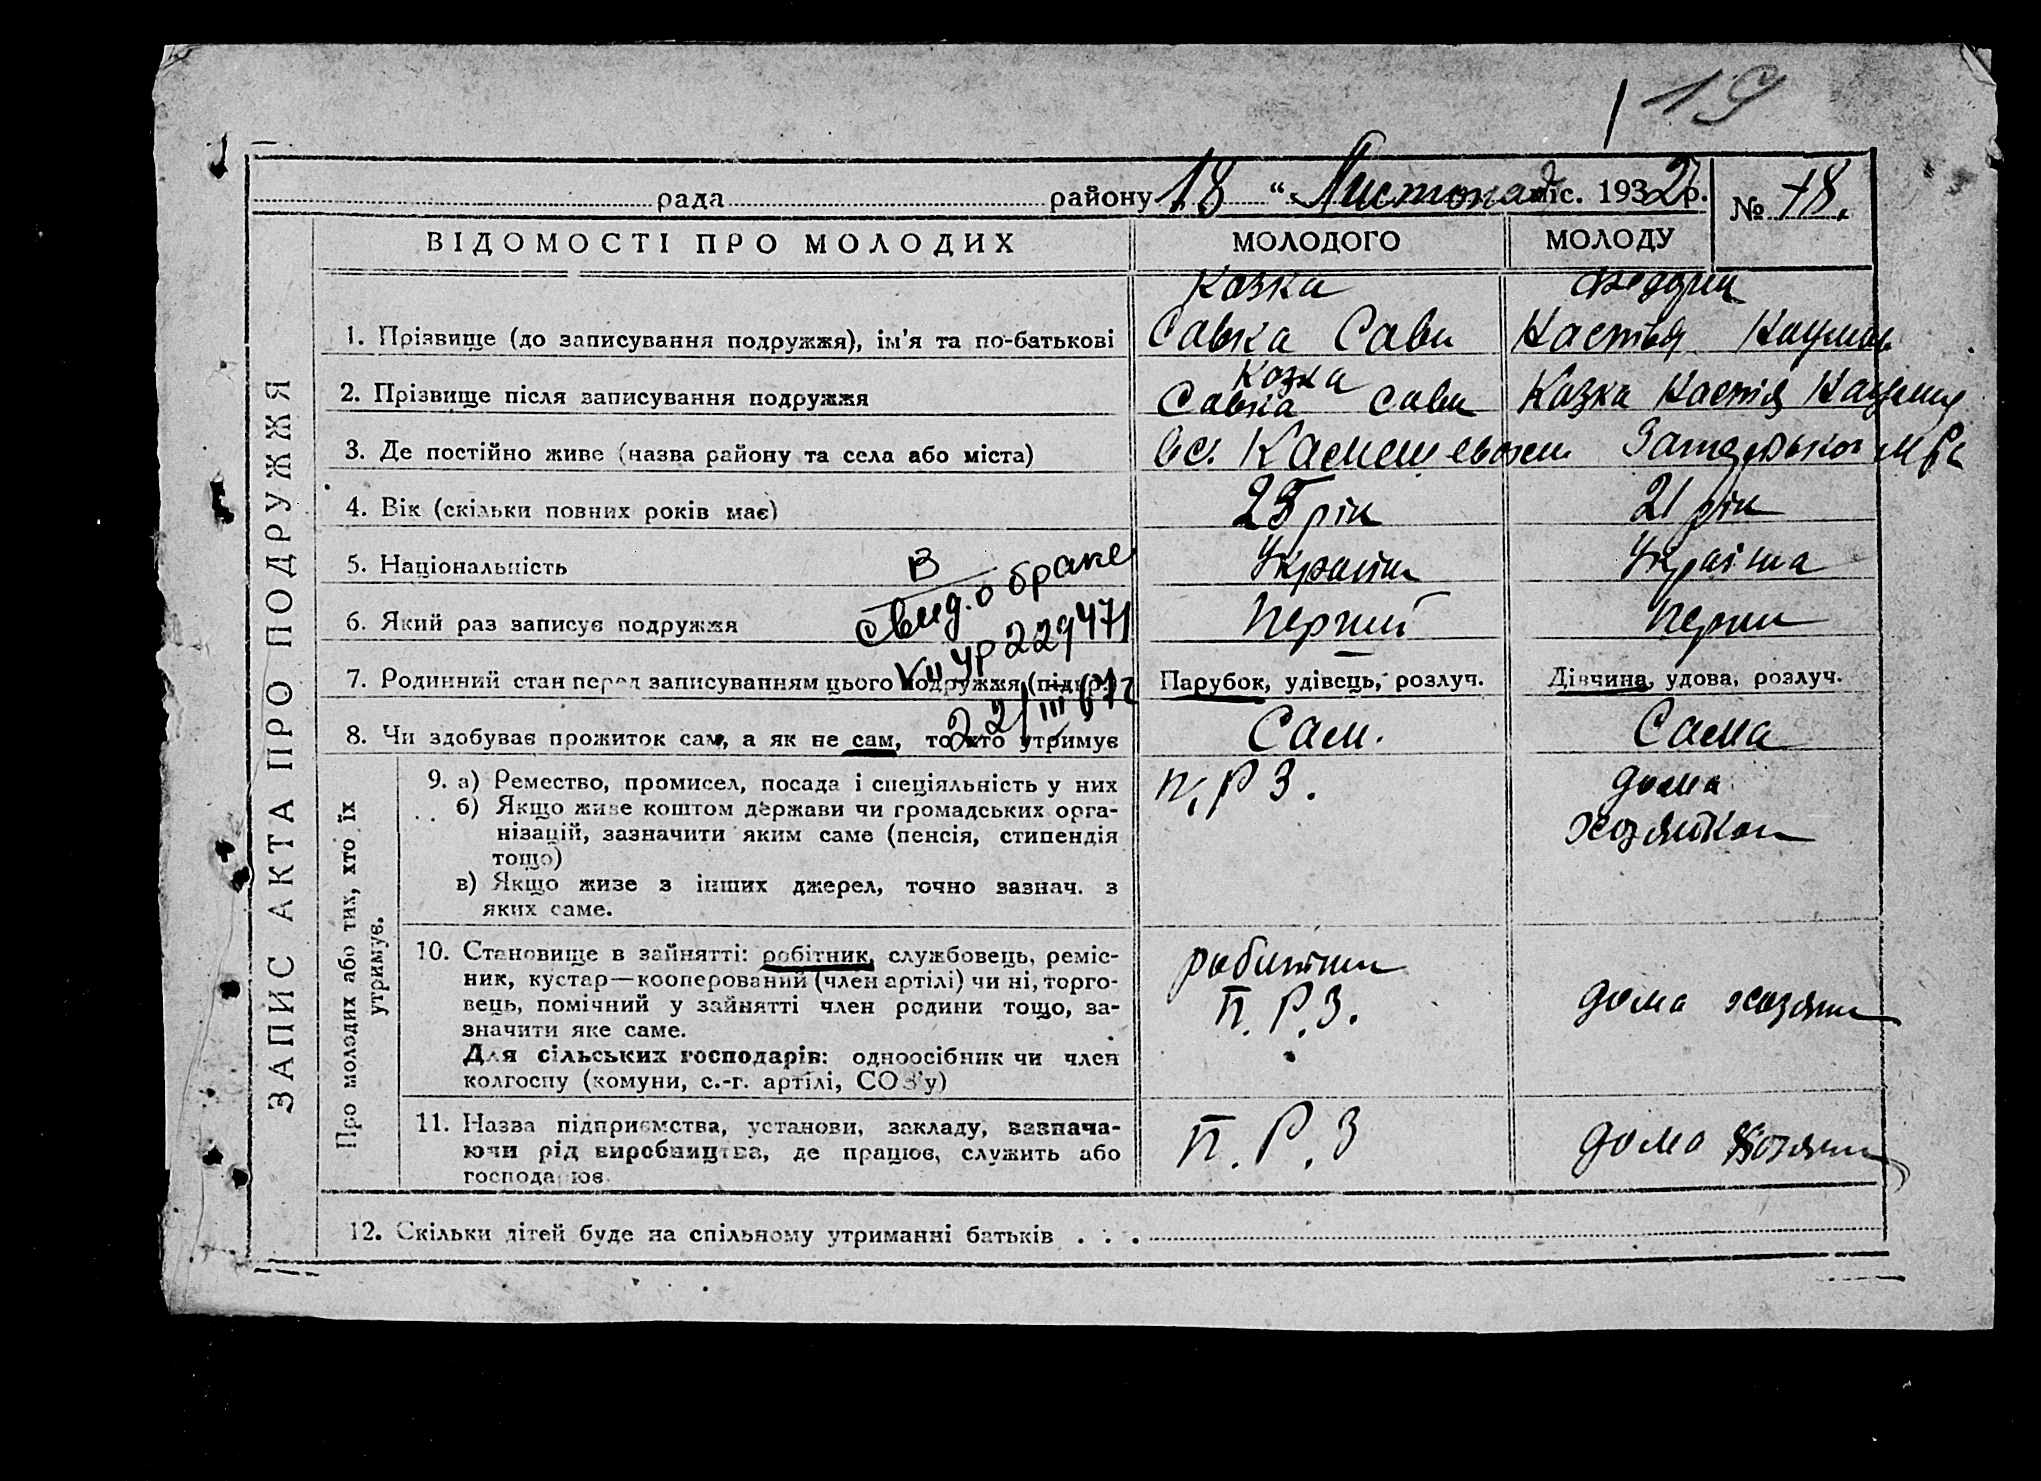 19
рада району 18 “ Листопад міс. 1932 р. № 78.
ВІДОМОСТІ ПРО МОЛОДИХ МОЛОДОГО МОЛОДУ
ЗАПИС АКТА ПРО ПОДРУЖЖЯ
Козка
1. Прізвище (до записування подружжя), ім'я та по-батькові Савка Сави Настя Наума
Козка
2. Прізвище після записування подружжя Савка Сави Козка Настя
3. Де постійно живе (назва району та села або міста)
4. Вік (скільки повних років має) 25 рік 21 рік
5. Національність Україн Україна
6. Який раз записує подружжя Перший Перши
В
свид. о браке
VII УР 229471
22/III 67г
7. Родинний стан перед записуванням цього подружжя (підкр.) Парубок, удівець, розлуч. Дівчина, удова, розлуч.
8. Чи здобуває прожиток сам, а як не сам, то хто утримує Сам. Сама
Про молодих або тих, хто їх утримує.
9. а) Ремество, промисел, посада і спеціяльність у них П.Р З. дома
б) Якщо живе коштом держави чи громадських орга- хозяйкою
нізацій, зазначити яким саме (пенсія, стипендія
тощо)
в) Якщо живе з інших джерел, точно зазнач. з
яких саме.
10. Становище в зайнятті: робітник, службовець, реміс- робитник
ник, кустар—кооперований (член артілі) чи ні, торго- П. Р.З. дома хозяйк
вець, помічний у зайнятті член родини тощо, за-
значити яке саме.
Для сільських господарів: одноосібник чи член
колгоспу (комуни, с.-г. артілі, СОЗ'у)
11. Назва підприємства, установи, закладу, зазнача- П. Р. З дома
ючи рід виробництва, де працює, служить або
господарює
12. Скільки дітей буде на спільному утриманні батьків . . .